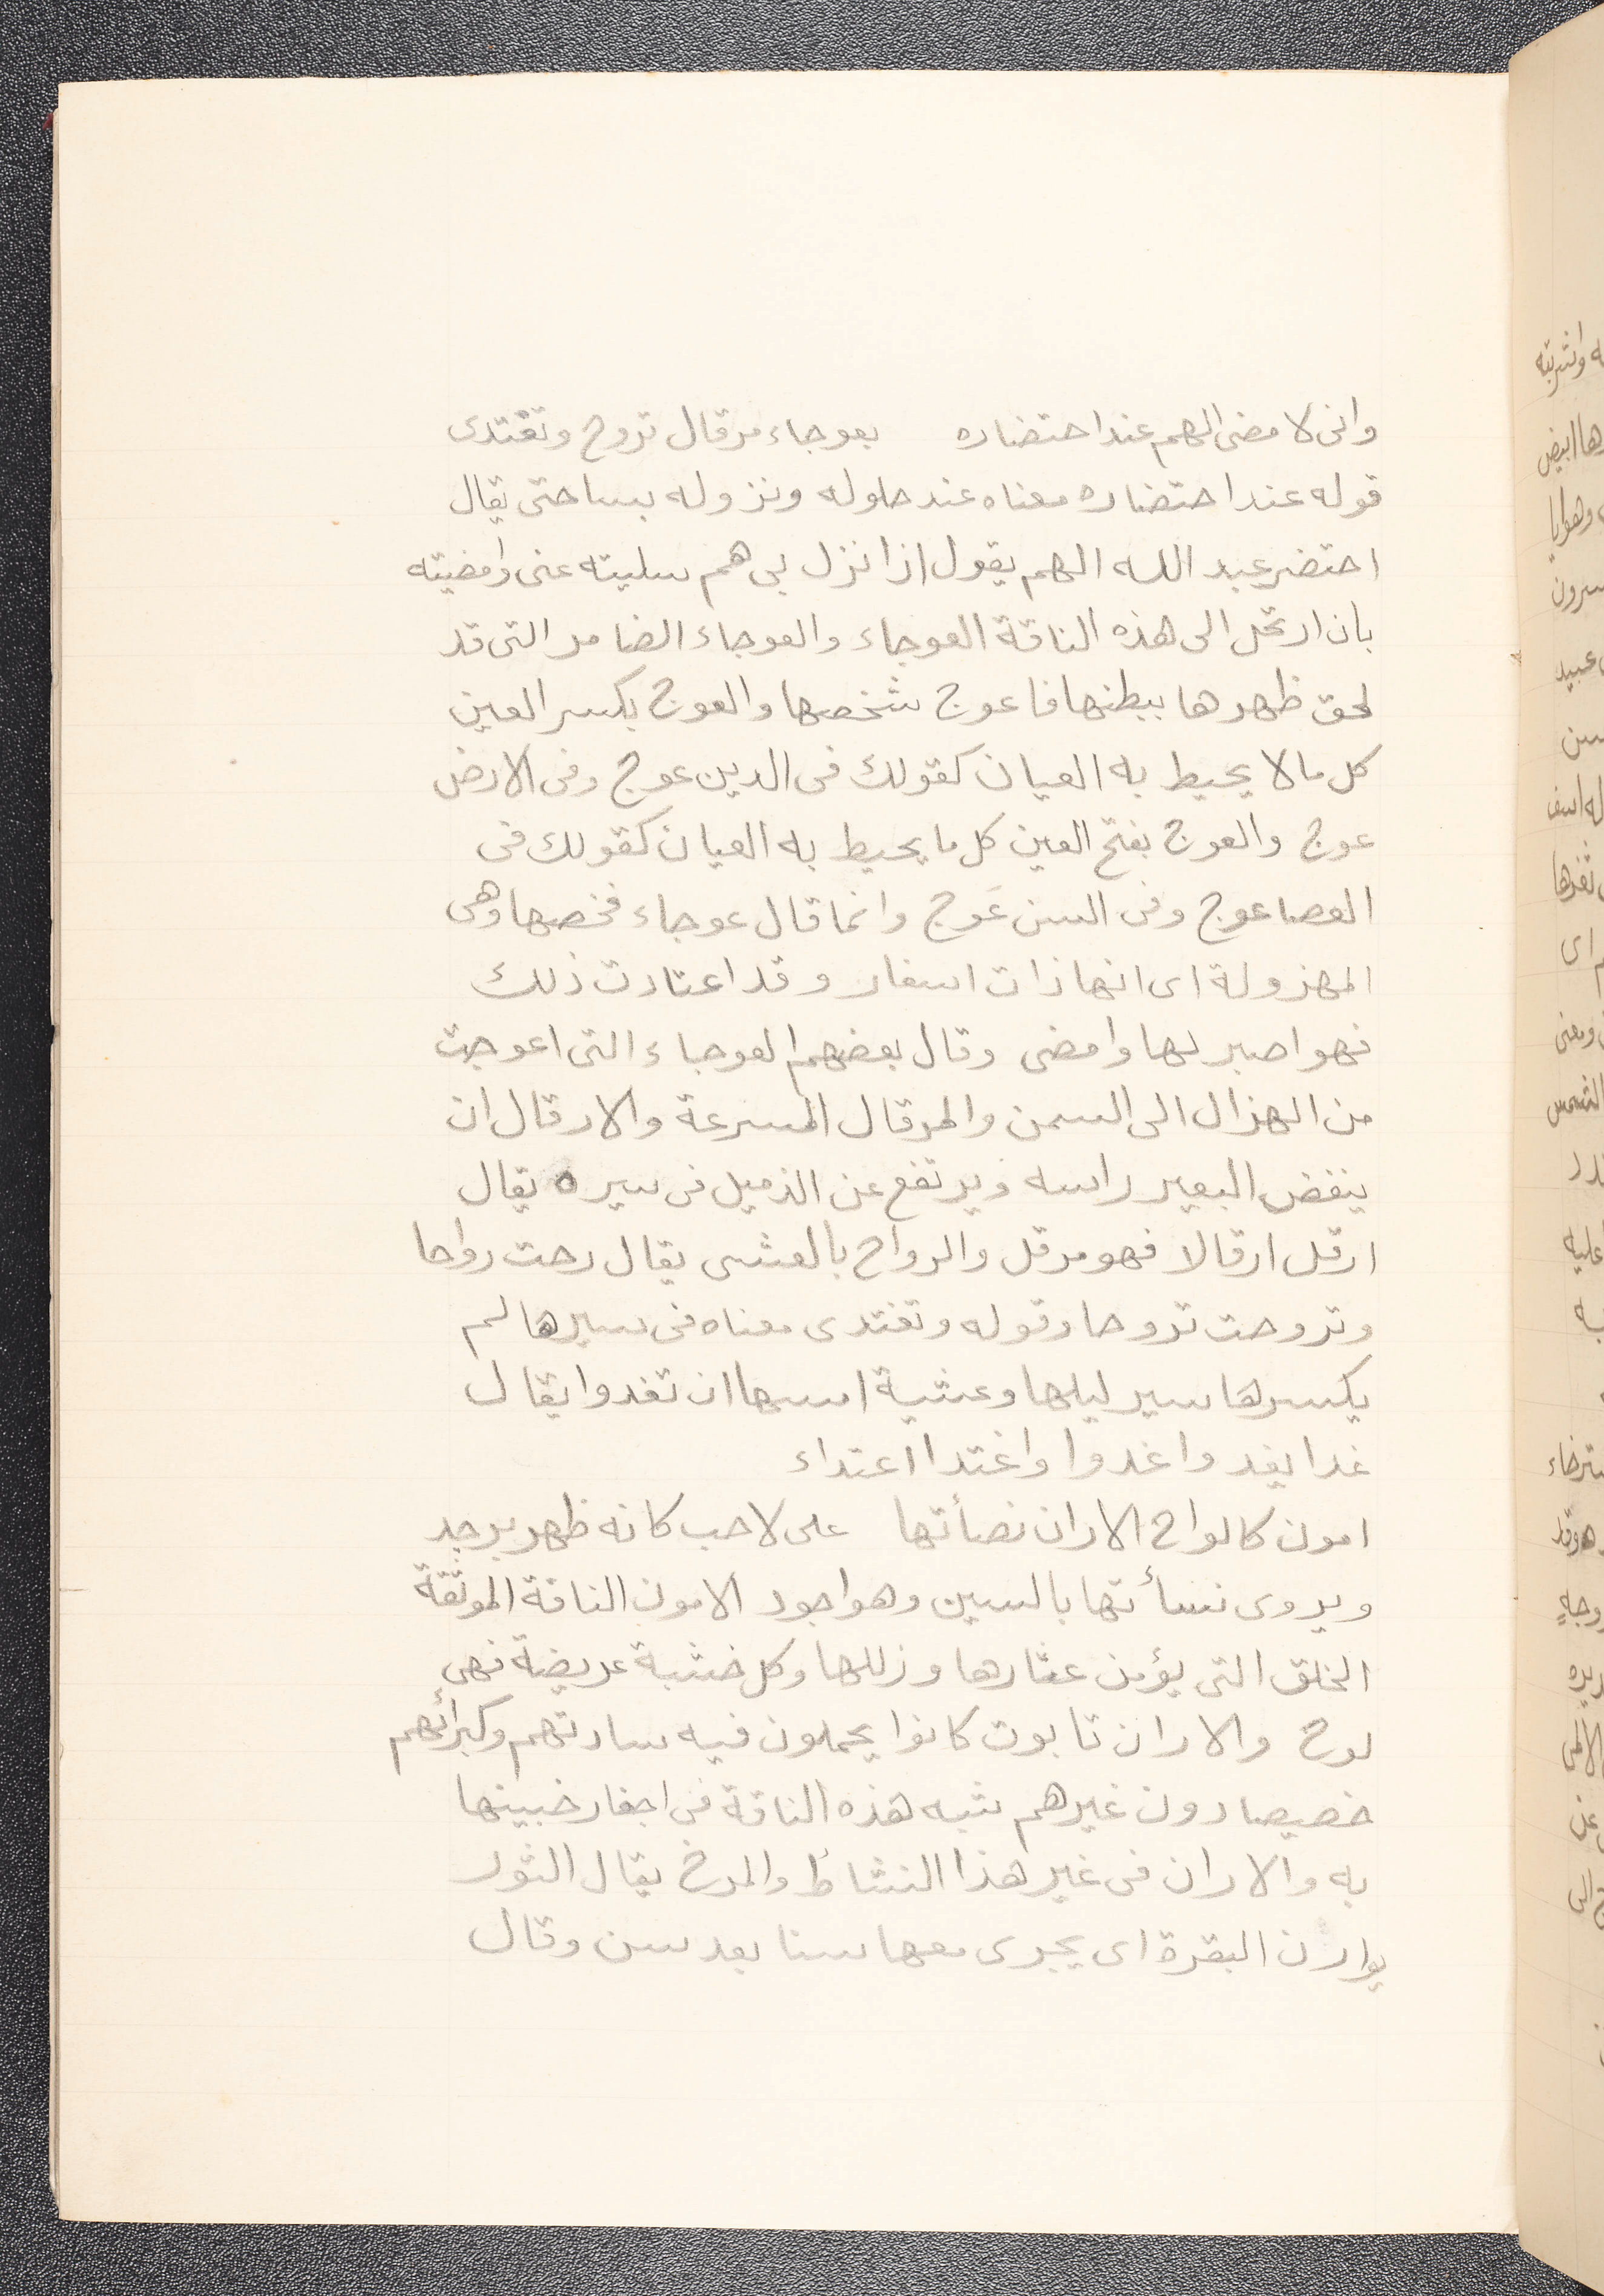 وانى لا مضى الهم عند احتضاره بعوجاء مرقال تروح وتغتدى
قوله عند احتضاره معناه عند حلوله ونزوله بساحتى يقال
احتضر عبد الله الهم يقول اذا نزل بى هم سليته عنى وامضيته
بان ارتحل الى هذه الناقة العوجاء والعوجاء الضامر التى قد
لحق ظهرها ببطنها فاعوج شخصها والعوج بكسر العين
كل مالا يحيط به العيان كقولك فى الدين عوج وفى الارض
عوج والعوج بفتح العين كل ما يحيط به العيان كقولك فى
العصا عوج وفى السن عَوج وانما قال عوجاء فخصها وهى
المهزولة اى انها ذات اسفار وقد اعتادت ذلك
فهو اصبر لها وامضى وقال بعضهم العوجاء التى اعوجت
من الهزال الى السمن والمرقال المسرعة والارقال ان
ينفض البعير راسه ويرتفع عن الذميل فى سيره يقال
ارقل ارقالا فهو مرقل والرواح بالعشى يقال رحت رواحا
وتروحت تروحا وقوله وتغتدى معناه فى سيرها لم
يكسرها سير ليلها وعشية امسها ان تغدوا يقال
غدا يغدوا غدوا واغتدا اعتداء
امون كالواح الاران نصأتها على لاحب كانه ظهر برجد
ويروى نسأتها بالسين وهو اجود الامون الناقة الموثقة
الخلق التى يؤمن عثارها وزللها وكل خشبة عريضة فهى
لوح والاران تابوت كانوا يحملون فيه سادتهم وكبرائهم
خصيصا دون غيرهم شبه هذه الناقة فى اجفار خبينها
به والاران فى غير هذا النشاط والمرح يقال الثور
يوارن البقرة اى يجرى معها سنا بعد سن وقال